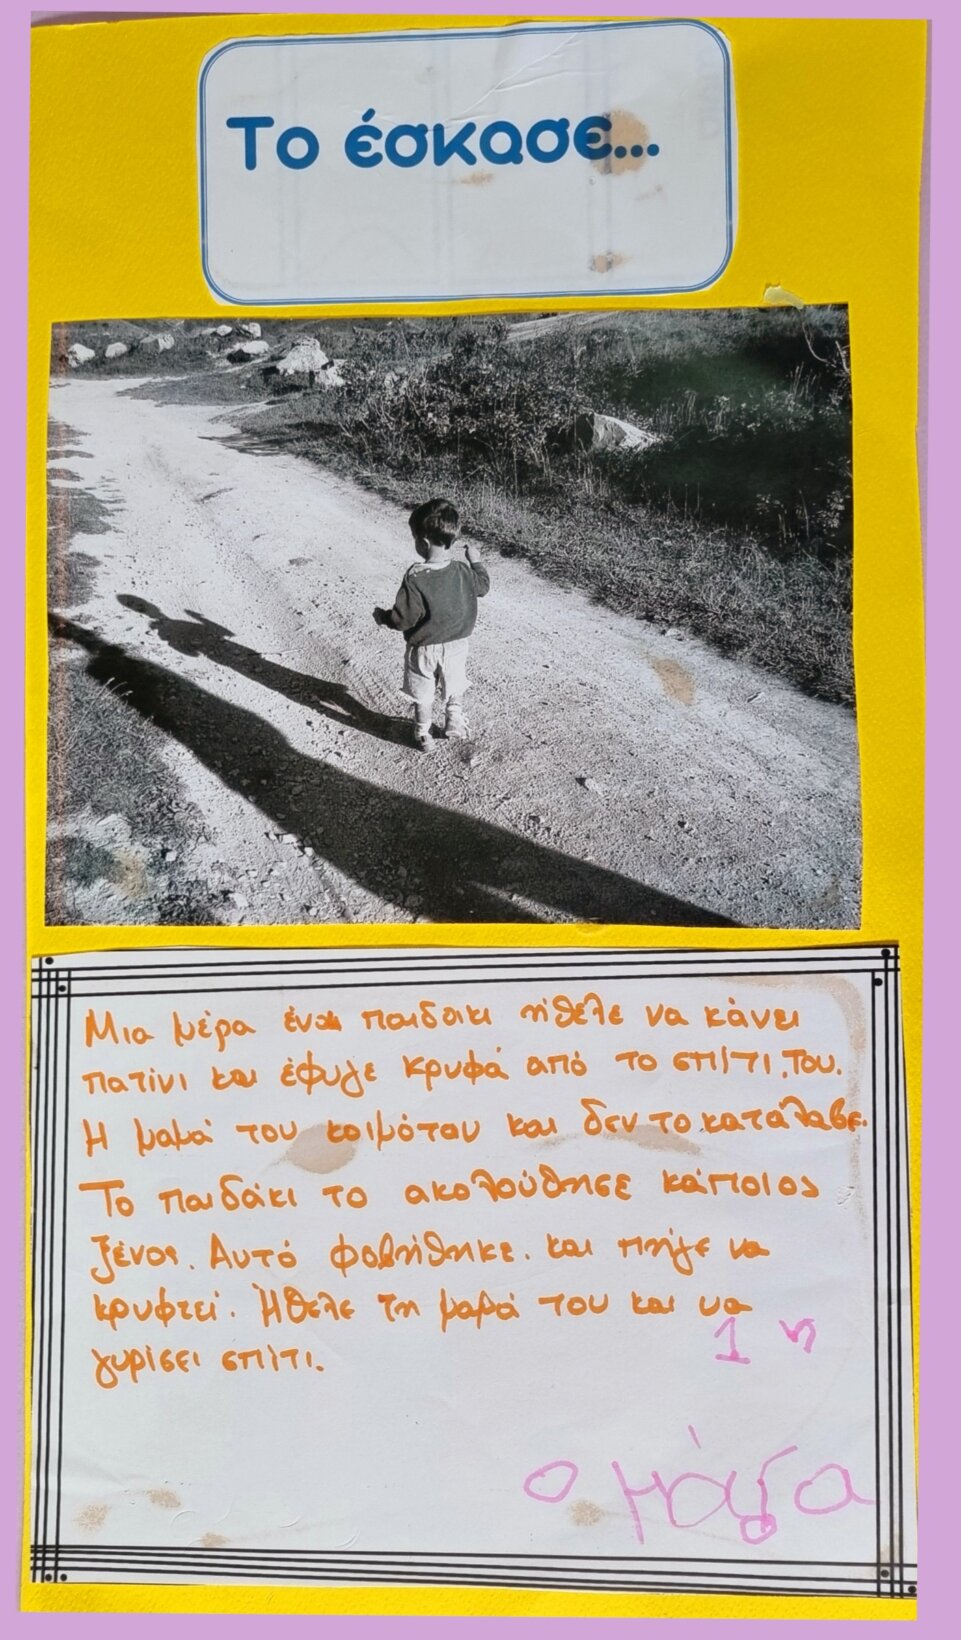 Το έσκασε...
Μια μέρα ένα παιδάκι ήθελε να κάνει
πατίνι και έφυγε κρυφά από το σπίτι του.
Η μαμά του κοιμόταν και δεν το κατάλαβε.
Το παιδάκι το ακολούθησε κάποιος
ξένος. Αυτό φοβήθηκε. και πήγε να
κρυφτεί. Ήθελε τη μαμά του και να
γυρίσει σπίτι.
1 η
ο